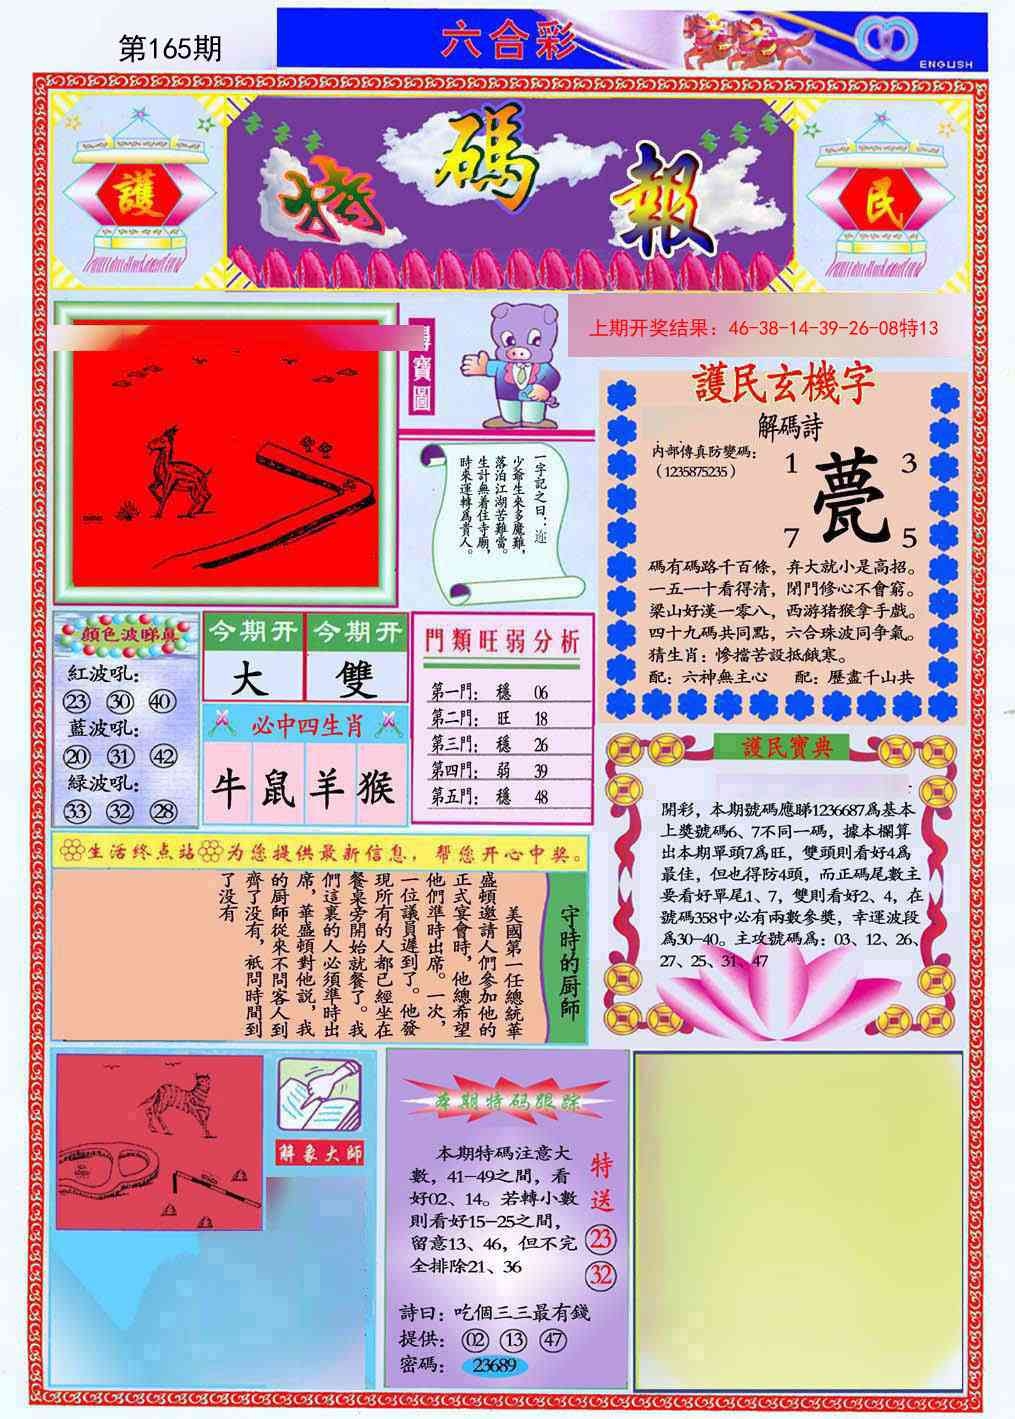 第165期
六合彩
ENGLISH
護
特碼報
民
尋寶圖
上期开奖结果：46-38-14-39-26-08特13
一字記之曰：迩
少爺生來多魔難，
落泊江湖苦難當。
生計無着住寺廟，
時來運轉爲貴人。
護民玄機字
解碼詩
内部傳真防變碼：
（1235875235）
1
3
甍
7
5
碼有碼路千百條，弃大就小是高招。
一五一十看得清，閉門修心不會窮。
梁山好漢一零八，西游猪猴拿手戲。
四十九碼共同點，六合珠波同争氣。
猜生肖：慘擋苦設抵餓寒。
配：六神無主心　配：歷盡千山共
顔色波睇真
紅波吼：
23 30 40
藍波吼：
20 31 42
緑波吼：
33 32 28
今期开
大
今期开
雙
必中四生肖
牛 鼠 羊 猴
門類旺弱分析
第一門： 穩 06
第二門： 旺 18
第三門： 穩 26
第四門： 弱 39
第五門： 穩 48
護民寶典
開彩，本期號碼應睇1236687爲基本
上獎號碼6、7不同一碼，據本欄算
出本期單頭7爲旺，雙頭則看好4爲
最佳，但也得防4頭，而正碼尾數主
要看好單尾1、7，雙則看好2、4，在
號碼358中必有兩數參獎，幸運波段
爲30-40。主攻號碼爲：03、12、26、
27、25、31、47
生活终点站 为您提供最新信息，帮您开心中奖。
守時的厨師
美國第一任總統華
盛頓邀請人們參加他的
正式宴會時，他總希望
他們準時出席。一次，
一位議員遲到了。他發
現所有的人都已經坐在
餐桌旁開始就餐了。我
們這裏的人必須準時出
席，華盛頓對他説，我
的厨師從來不問客人到
齊了没有，衹問時間到
了没有
解象大師
本期特码跟踪
本期特碼注意大
數，41-49之間，看
好02、14。若轉小數
則看好15-25之間，
留意13、46，但不完
全排除21、36
特送
23
32
詩曰：吃個三三最有錢
提供： 02 13 47
密碼： 23689